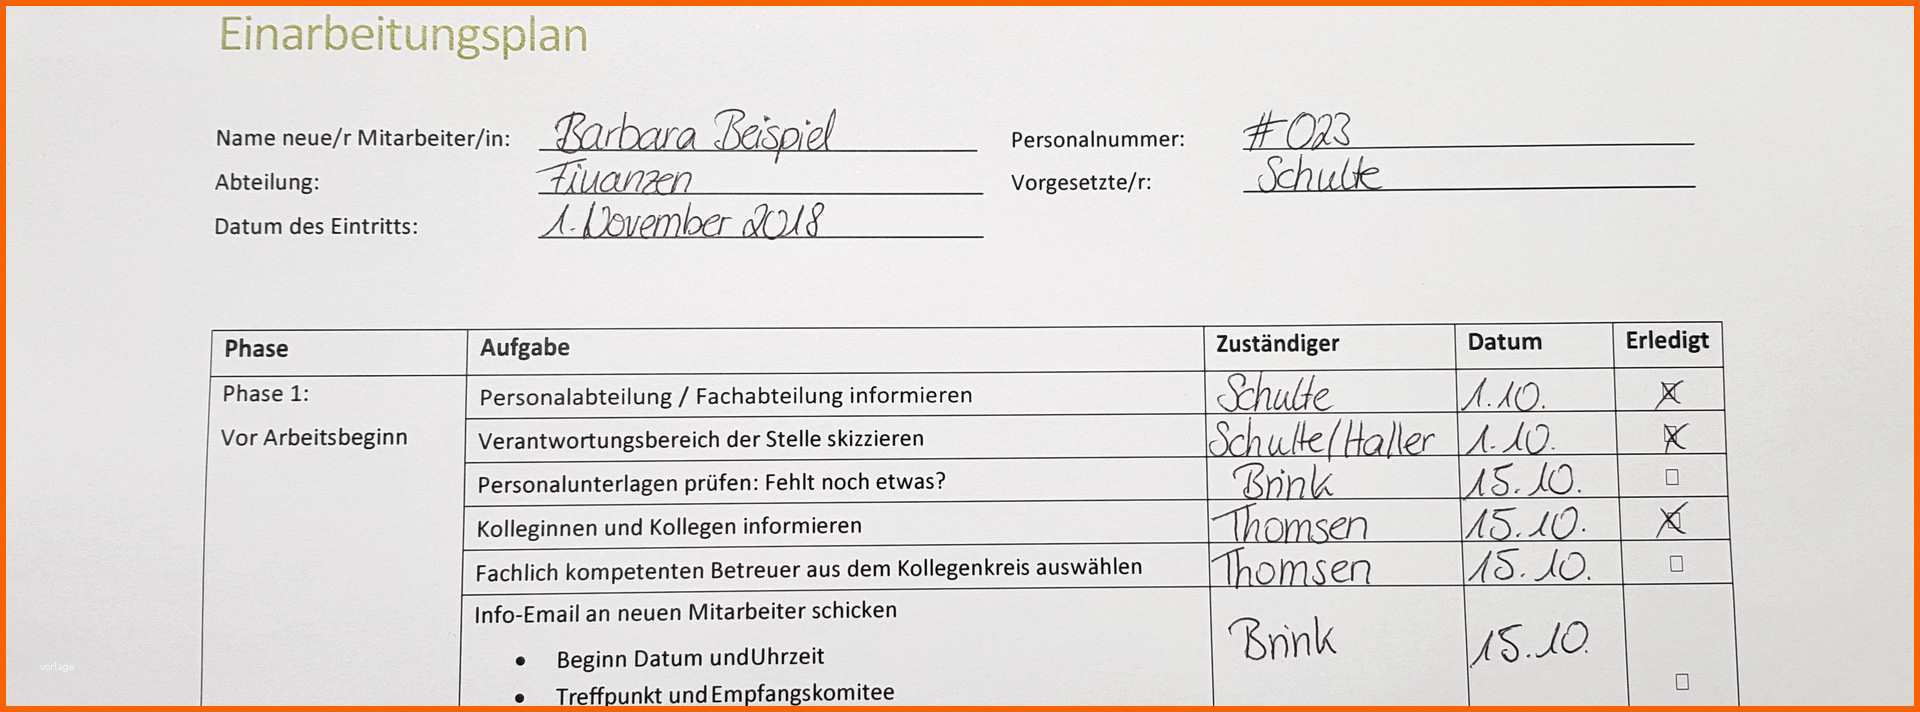 Einarbeitungsplan
Name neue/r Mitarbeiter/in: Barbara Beispiel Personalnummer: #023
Abteilung: Finanzen Vorgesetzte/r: Schulte
Datum des Eintritts: 1. November 2018
Phase Aufgabe Zuständiger Datum Erledigt
Phase 1: Personalabteilung / Fachabteilung informieren Schulte 1.10.
Vor Arbeitsbeginn Verantwortungsbereich der Stelle skizzieren Schulte/Haller 1.10.
Personalunterlagen prüfen: Fehlt noch etwas? Brink 15.10.
Kolleginnen und Kollegen informieren Thomsen 15.10.
Fachlich kompetenten Betreuer aus dem Kollegenkreis auswählen Thomsen 15.10.
Info-Email an neuen Mitarbeiter schicken Brink 15.10.
• Beginn Datum undUhrzeit
• Treffpunkt und Empfangskomitee
vorlage